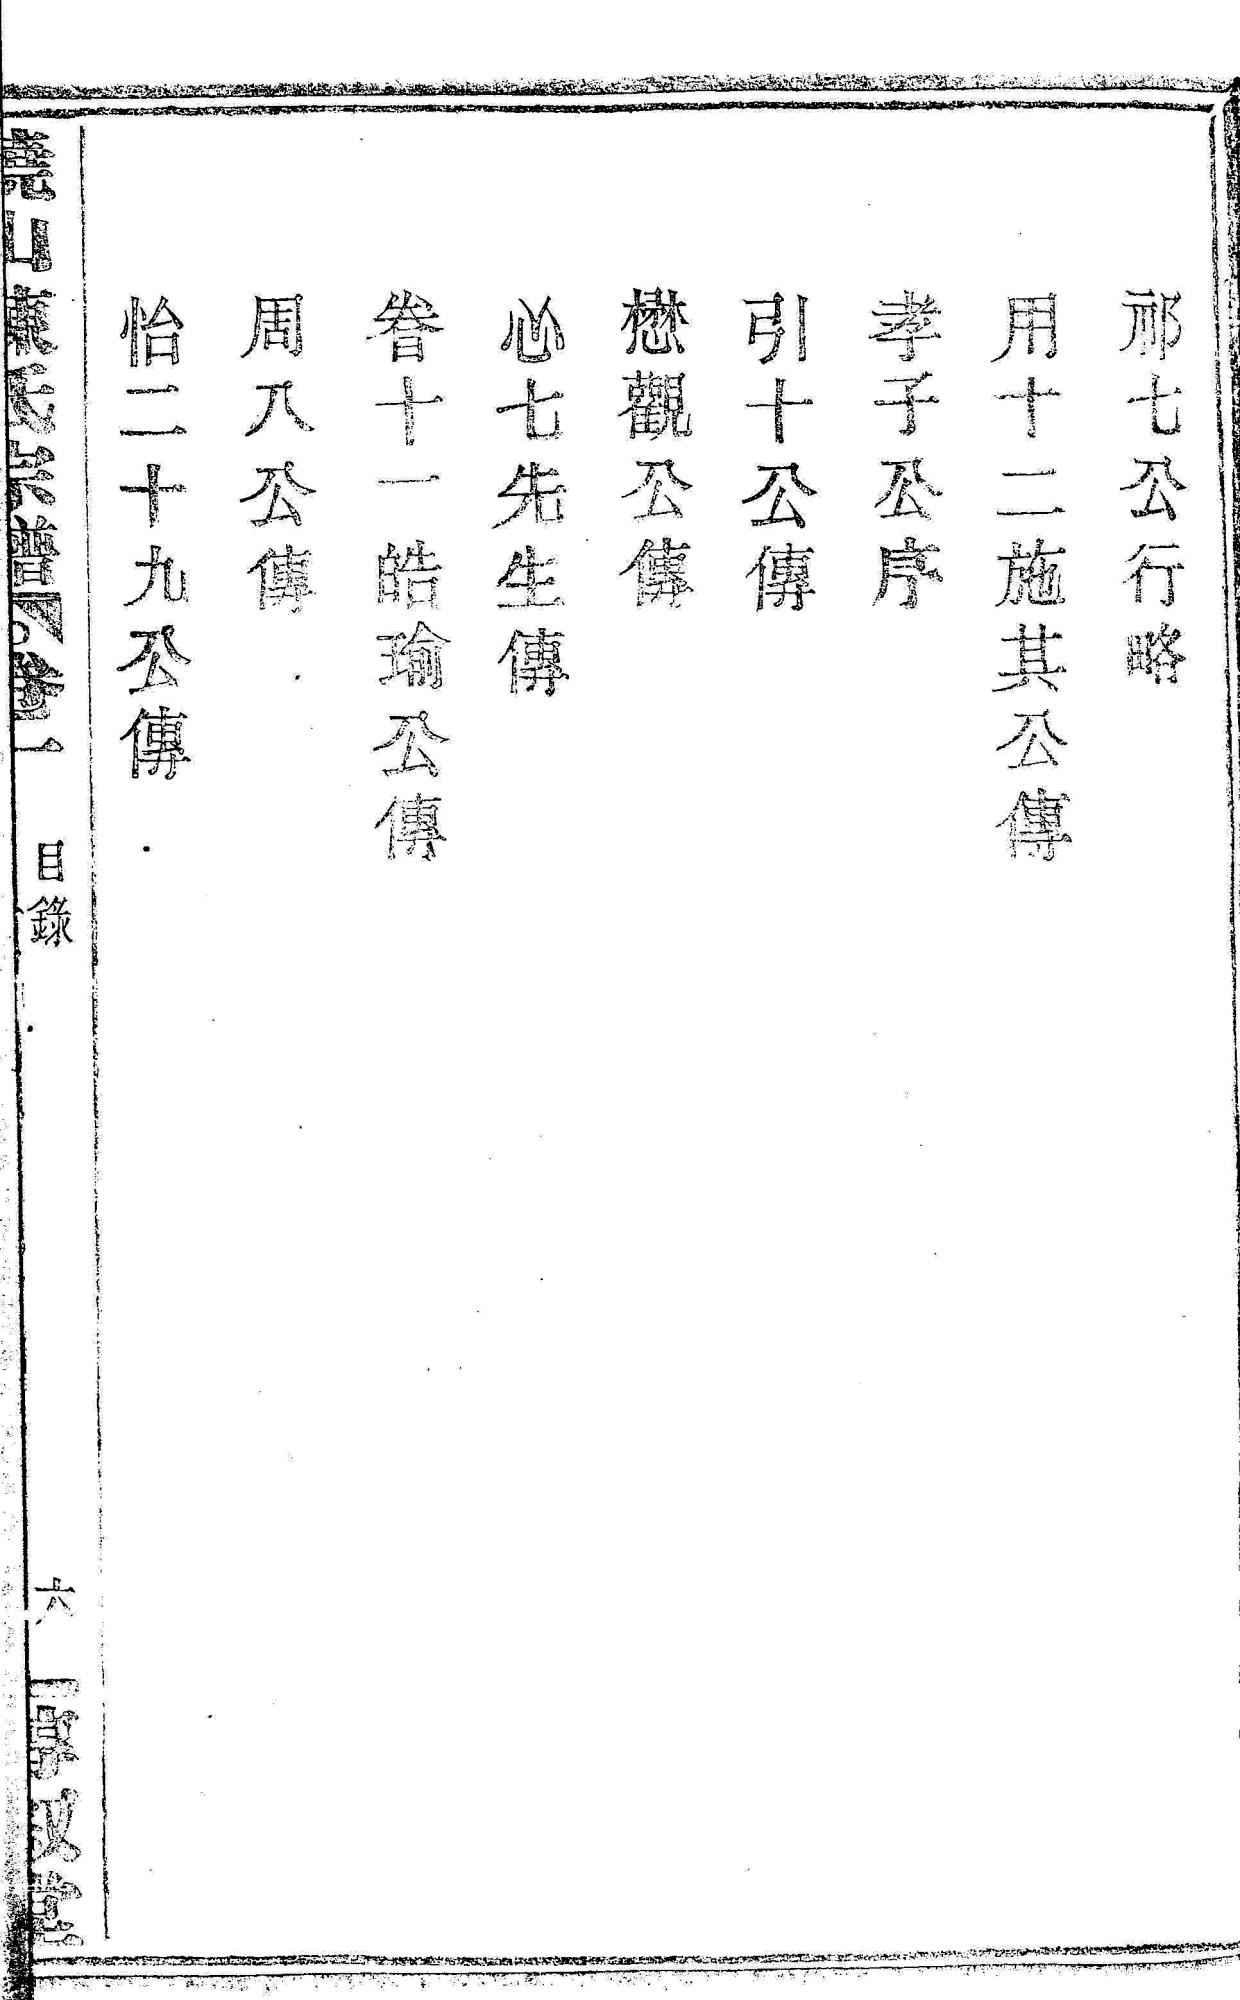 祁七公行略
用十二施其公傳
孝子公序
引十公傳
懋觀公傳
心七先生傳
眷十一皓瑜公傳
周八公傳
怡二十九公傳
山陳氏宗譜 卷一 目錄 六 敘堂